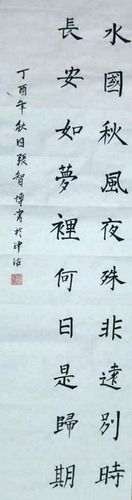 水國秋風夜殊非遠別時
長安如夢裡何日是歸期
丁酉年秋日張智博書於津沽